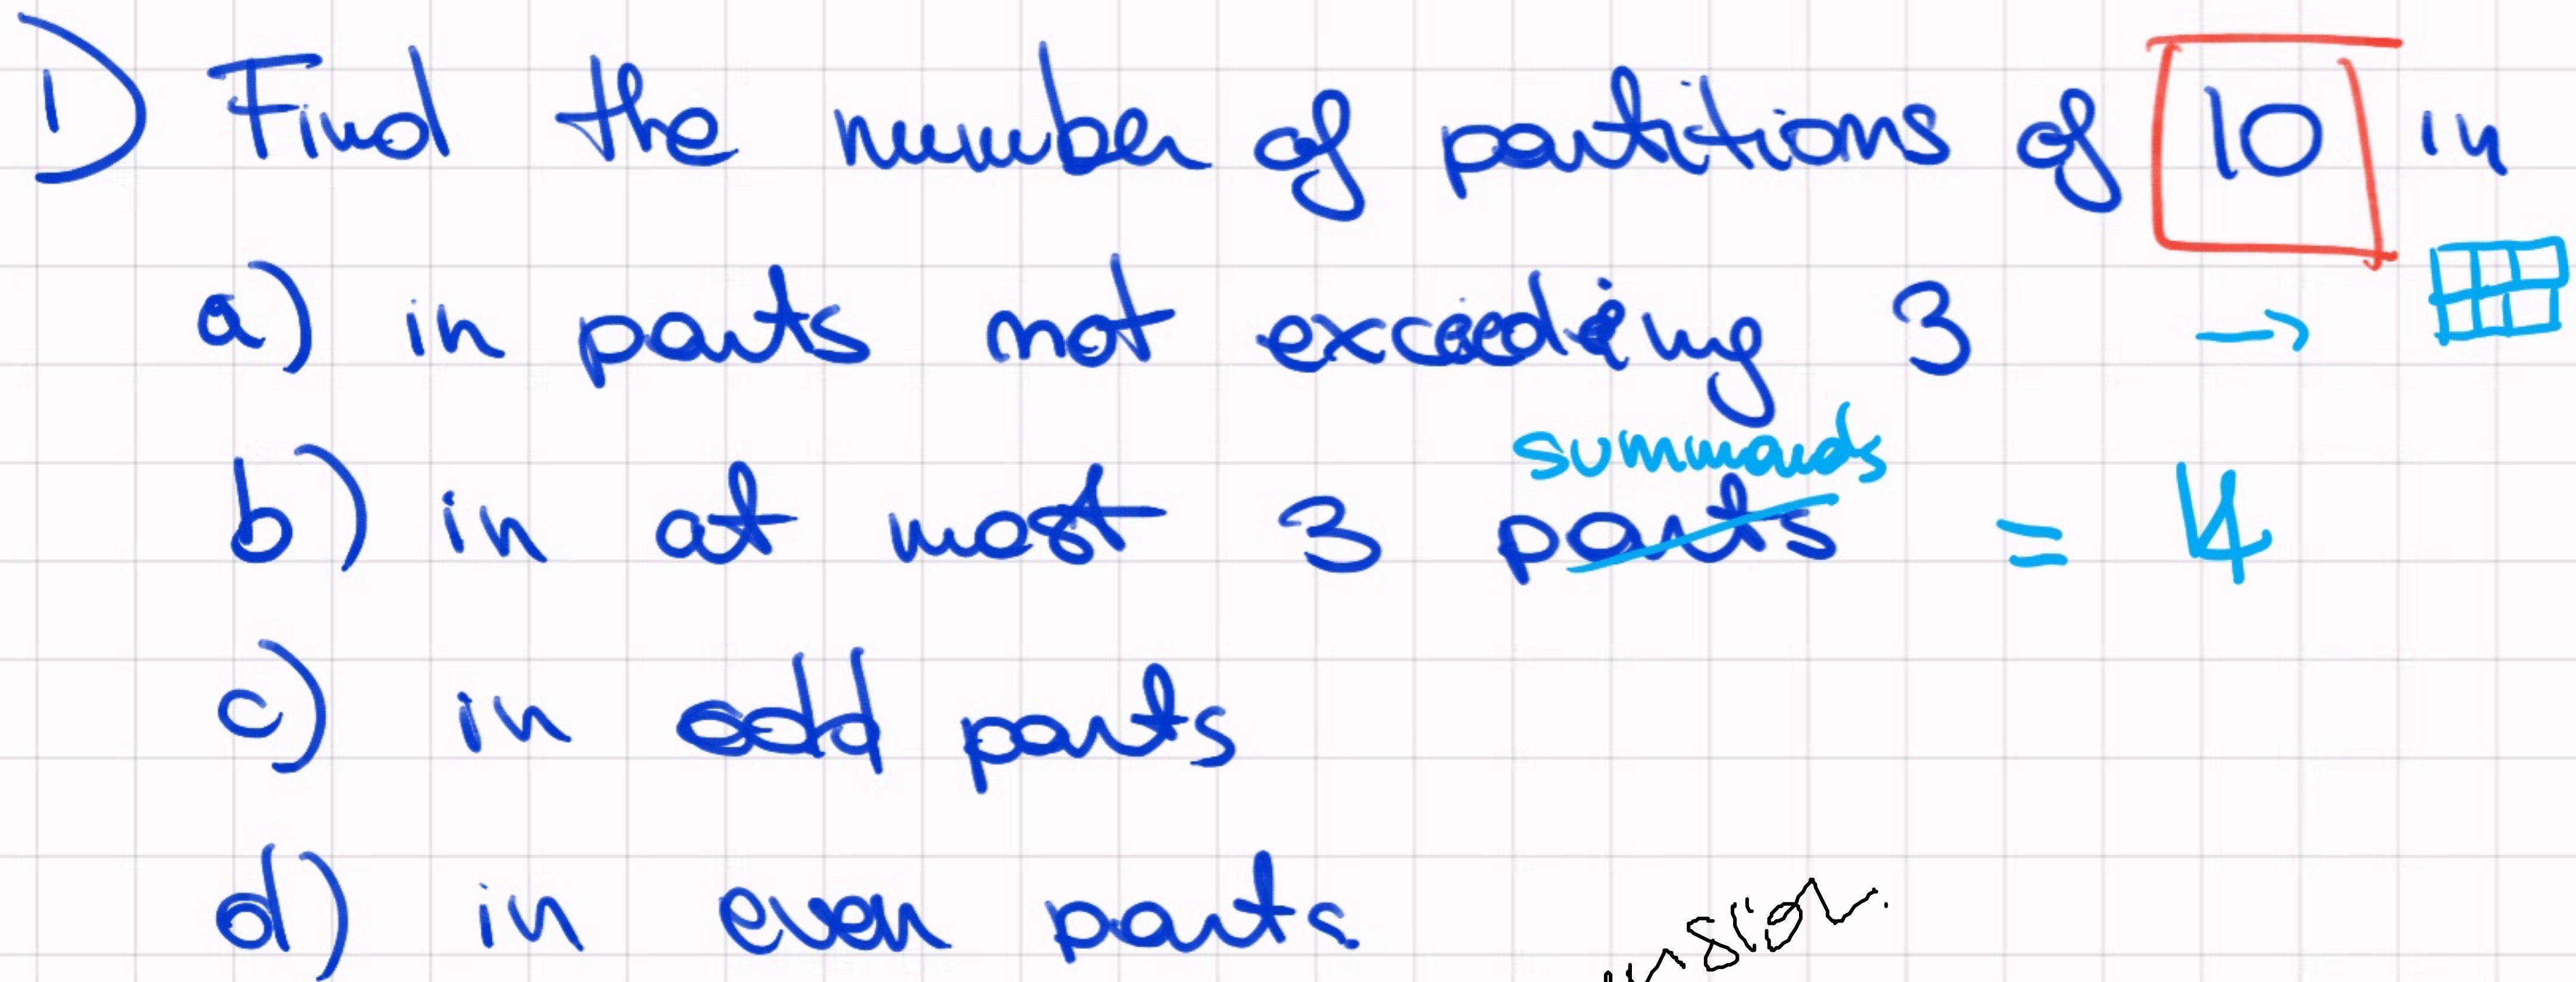 1) Find the number of partitions of 10 in
a) in parts not exceeding 3 →
summands
b) in at most 3 parts = 4
c) in odd parts
d) in even parts